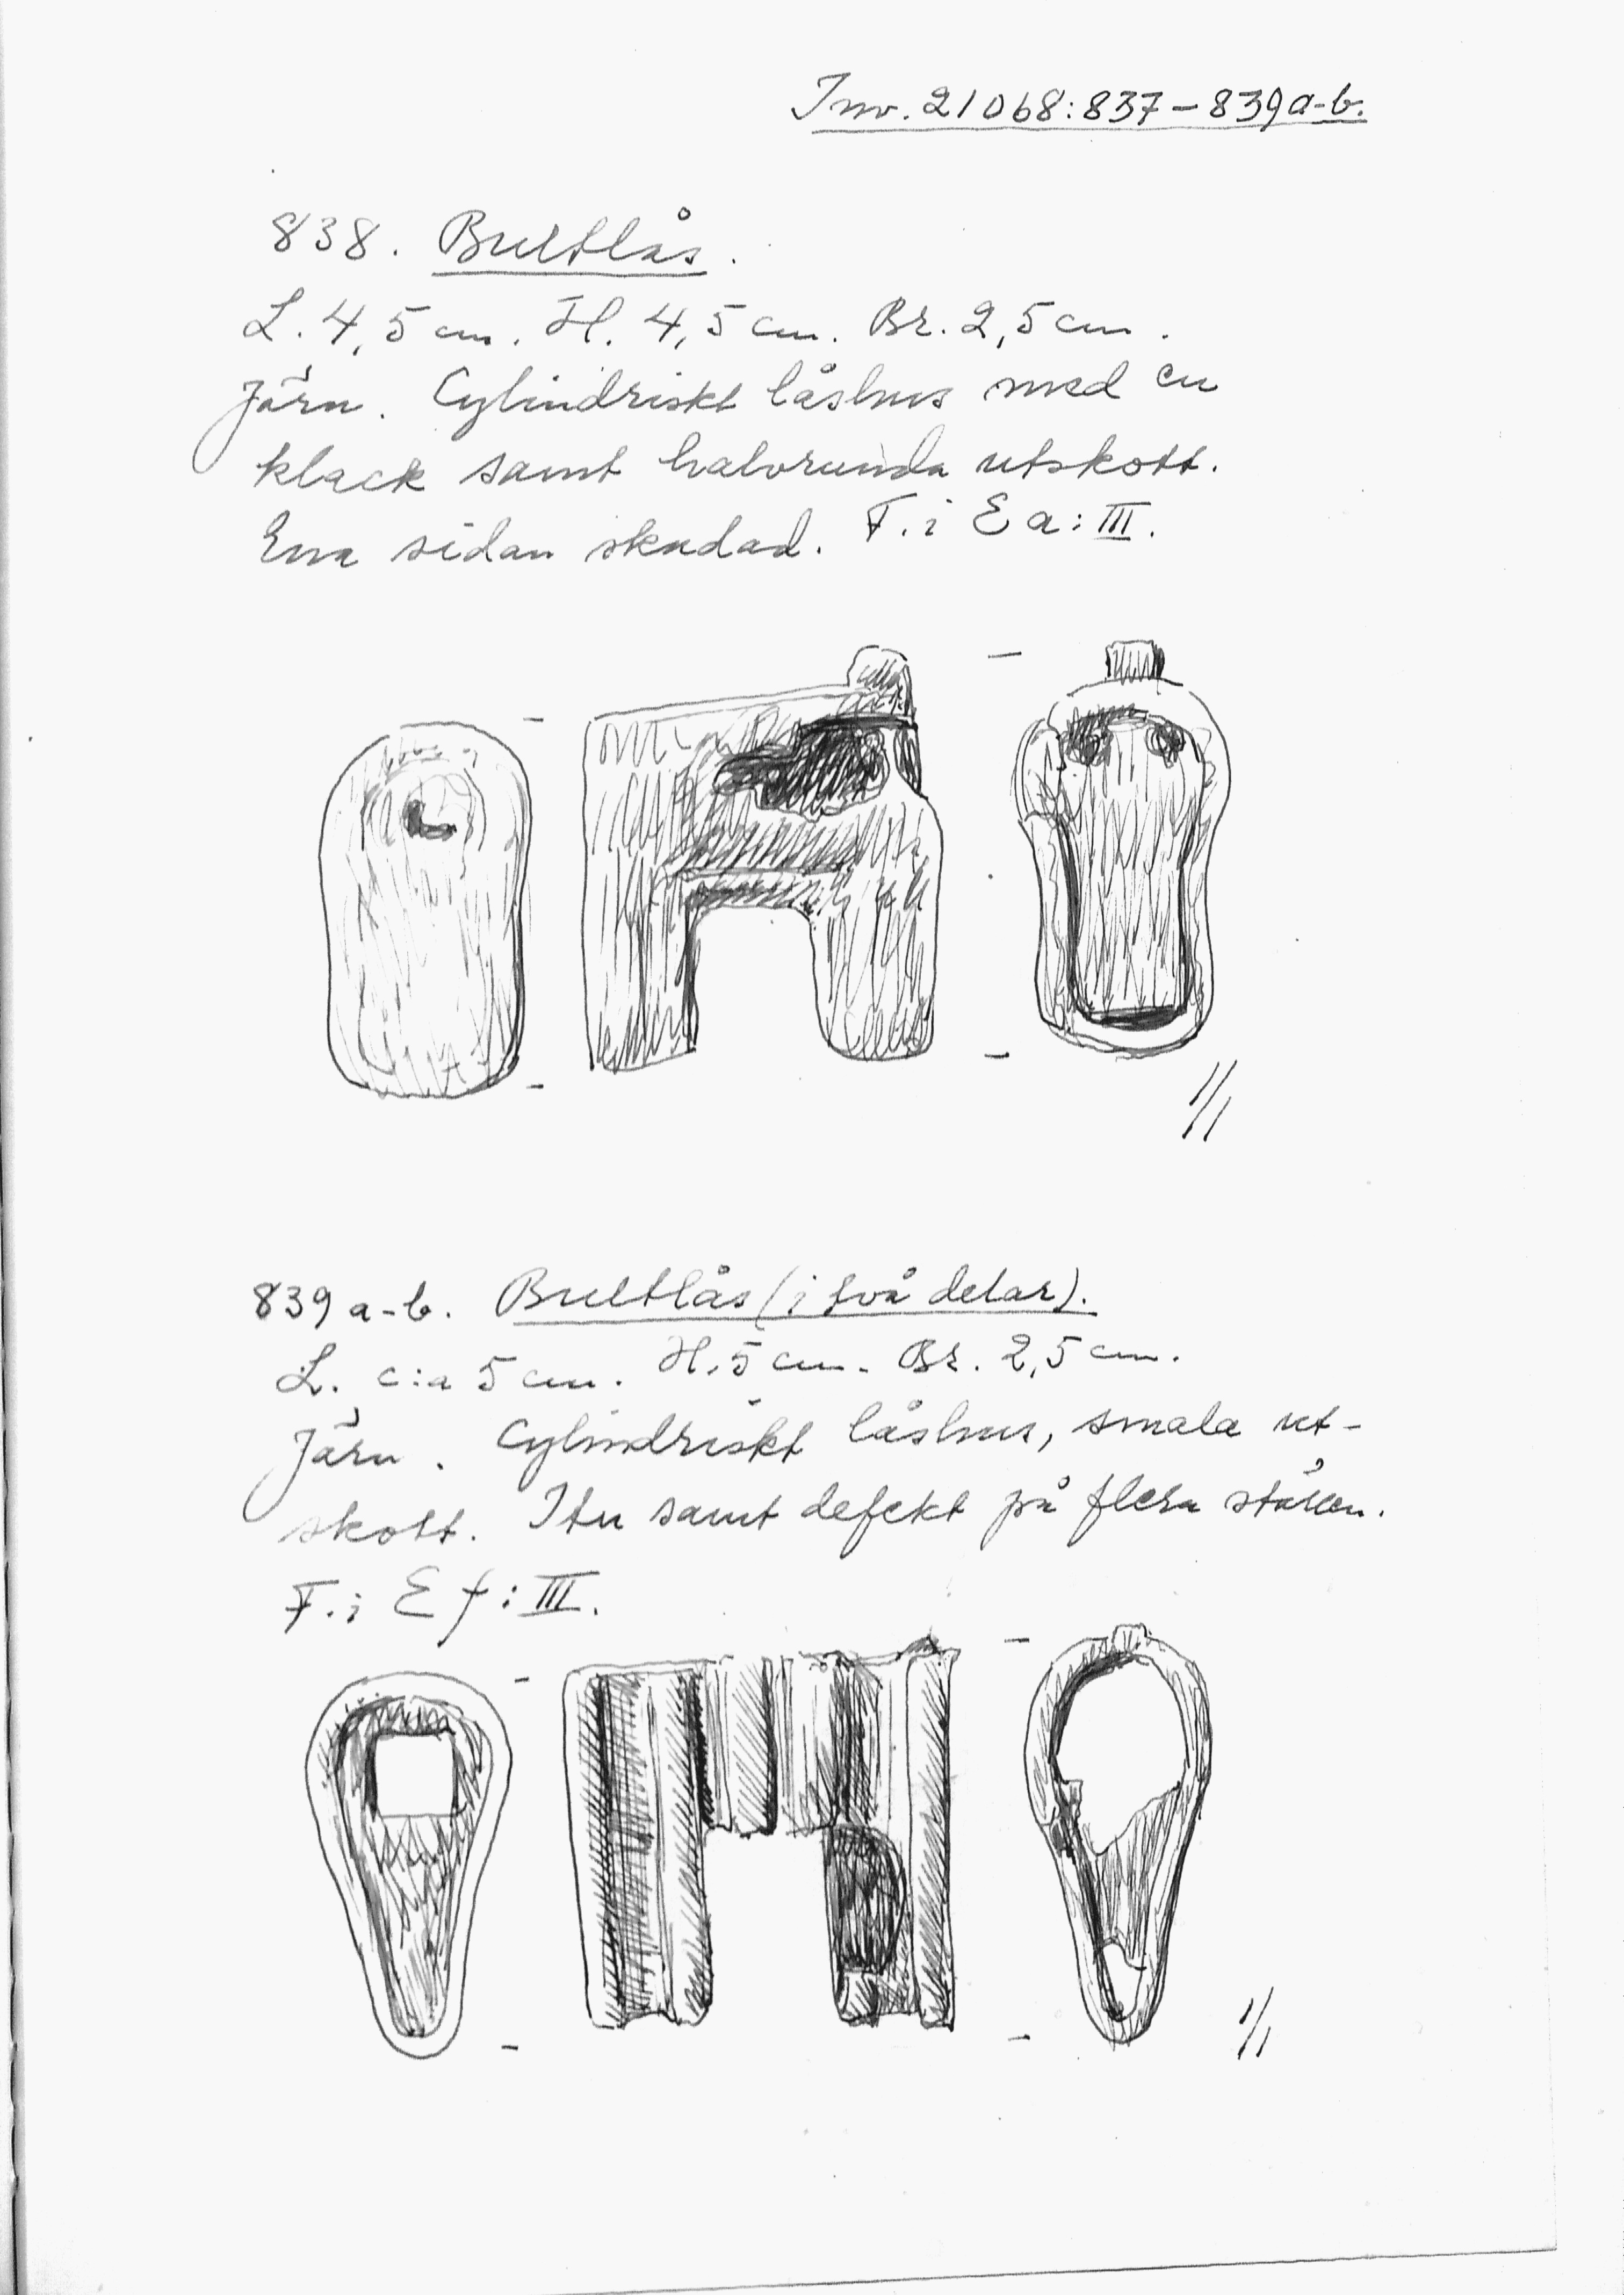 Inv. 21068:837-839a-b.
838. Bultlås.
L. 4,5 cm. H. 4,5 cm. Br. 2,5 cm.
Järn. Cylindriskt låshus med en
klack samt halvrunda utskott.
Ena sidan skadad. F. i E a: III.
1/1
839 a-b. Bultlås (i två delar).
L. c:a 5 cm. H. 5 cm. Br. 2,5 cm.
Järn. Cylindriskt låshus, smala ut-
skott. Itu samt defekt på flera ställen.
F. i E f: III.
1/1